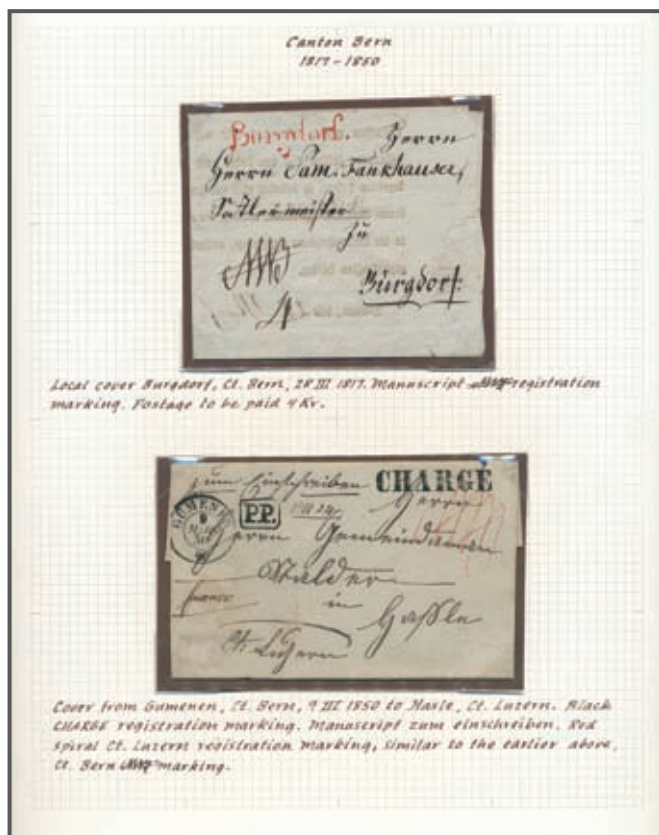 Canton Bern
1817 – 1850
Burgdorf.
Herrn
Herrn Sam. Fankhauser,
Sattlermeister
zu
Burgdorf.
4
Local cover Burgdorf, Ct. Bern, 28 III 1817. Manuscript registration
marking. Postage to be paid 4 Kr.
zum Einschreiben CHARGÉ
Herrn
GÜMENEN
9
P.P.
Herrn Gemeindaman
Walder
franco
in
Hassle
Ct. Luzern
Cover from Gumenen, Ct. Bern, 9 III 1850 to Hasle, Ct. Luzern. Black
CHARGE registration marking. Manuscript zum einschreiben. Red
spiral Ct. Luzern registration marking, similar to the earlier above,
Ct. Bern marking.